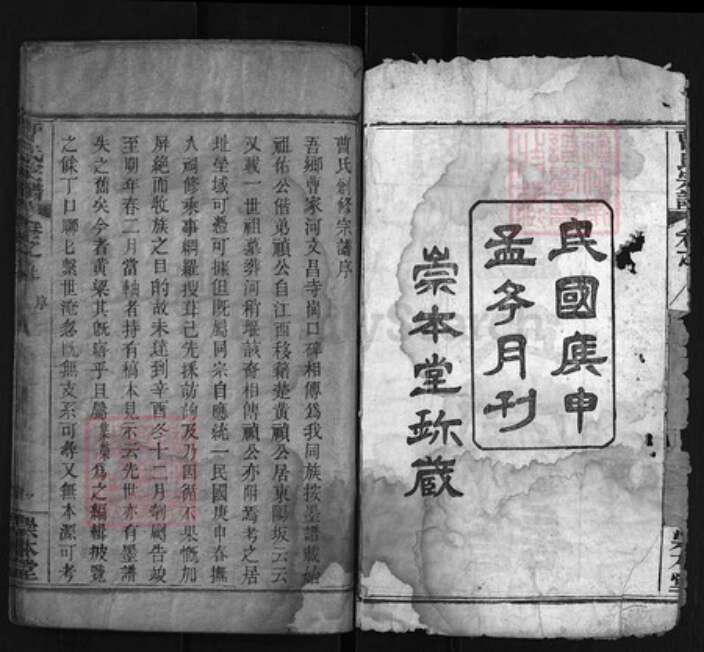 民國庚申
孟冬月刊
崇本堂珍藏
曹氏創修宗譜序
吾鄉曹家河文昌寺橋口碑相傳為我同族按墨譜載始
祖佑公偕弟禎公自江西移籍楚黃禎公居東陽坂云云
又載一世祖墓葬河稍堰該裔相傳禎公亦附焉考之居
址塋域可憑可據但既屬同宗自應統一民國庚申春撫
人祠修乘事網羅搜葺已先採訪的及乃因循不果慨加
屏絕而牧族之目的故未達到辛酉冬十二月剞劂告竣
至期年春二月當軸者持有稿本見示云先世亦有墨譜
失之舊矣今者黃梁其既寤乎且屬集為之編輯披覽
之餘丁口聯匕繫世淹忽既無支系可尋又無本源可考
序
崇本堂